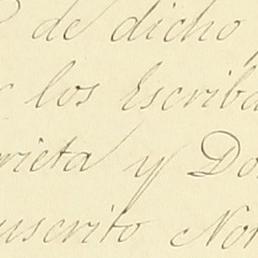 de dicho
los Escriba
rrieta y Do
uscrito No